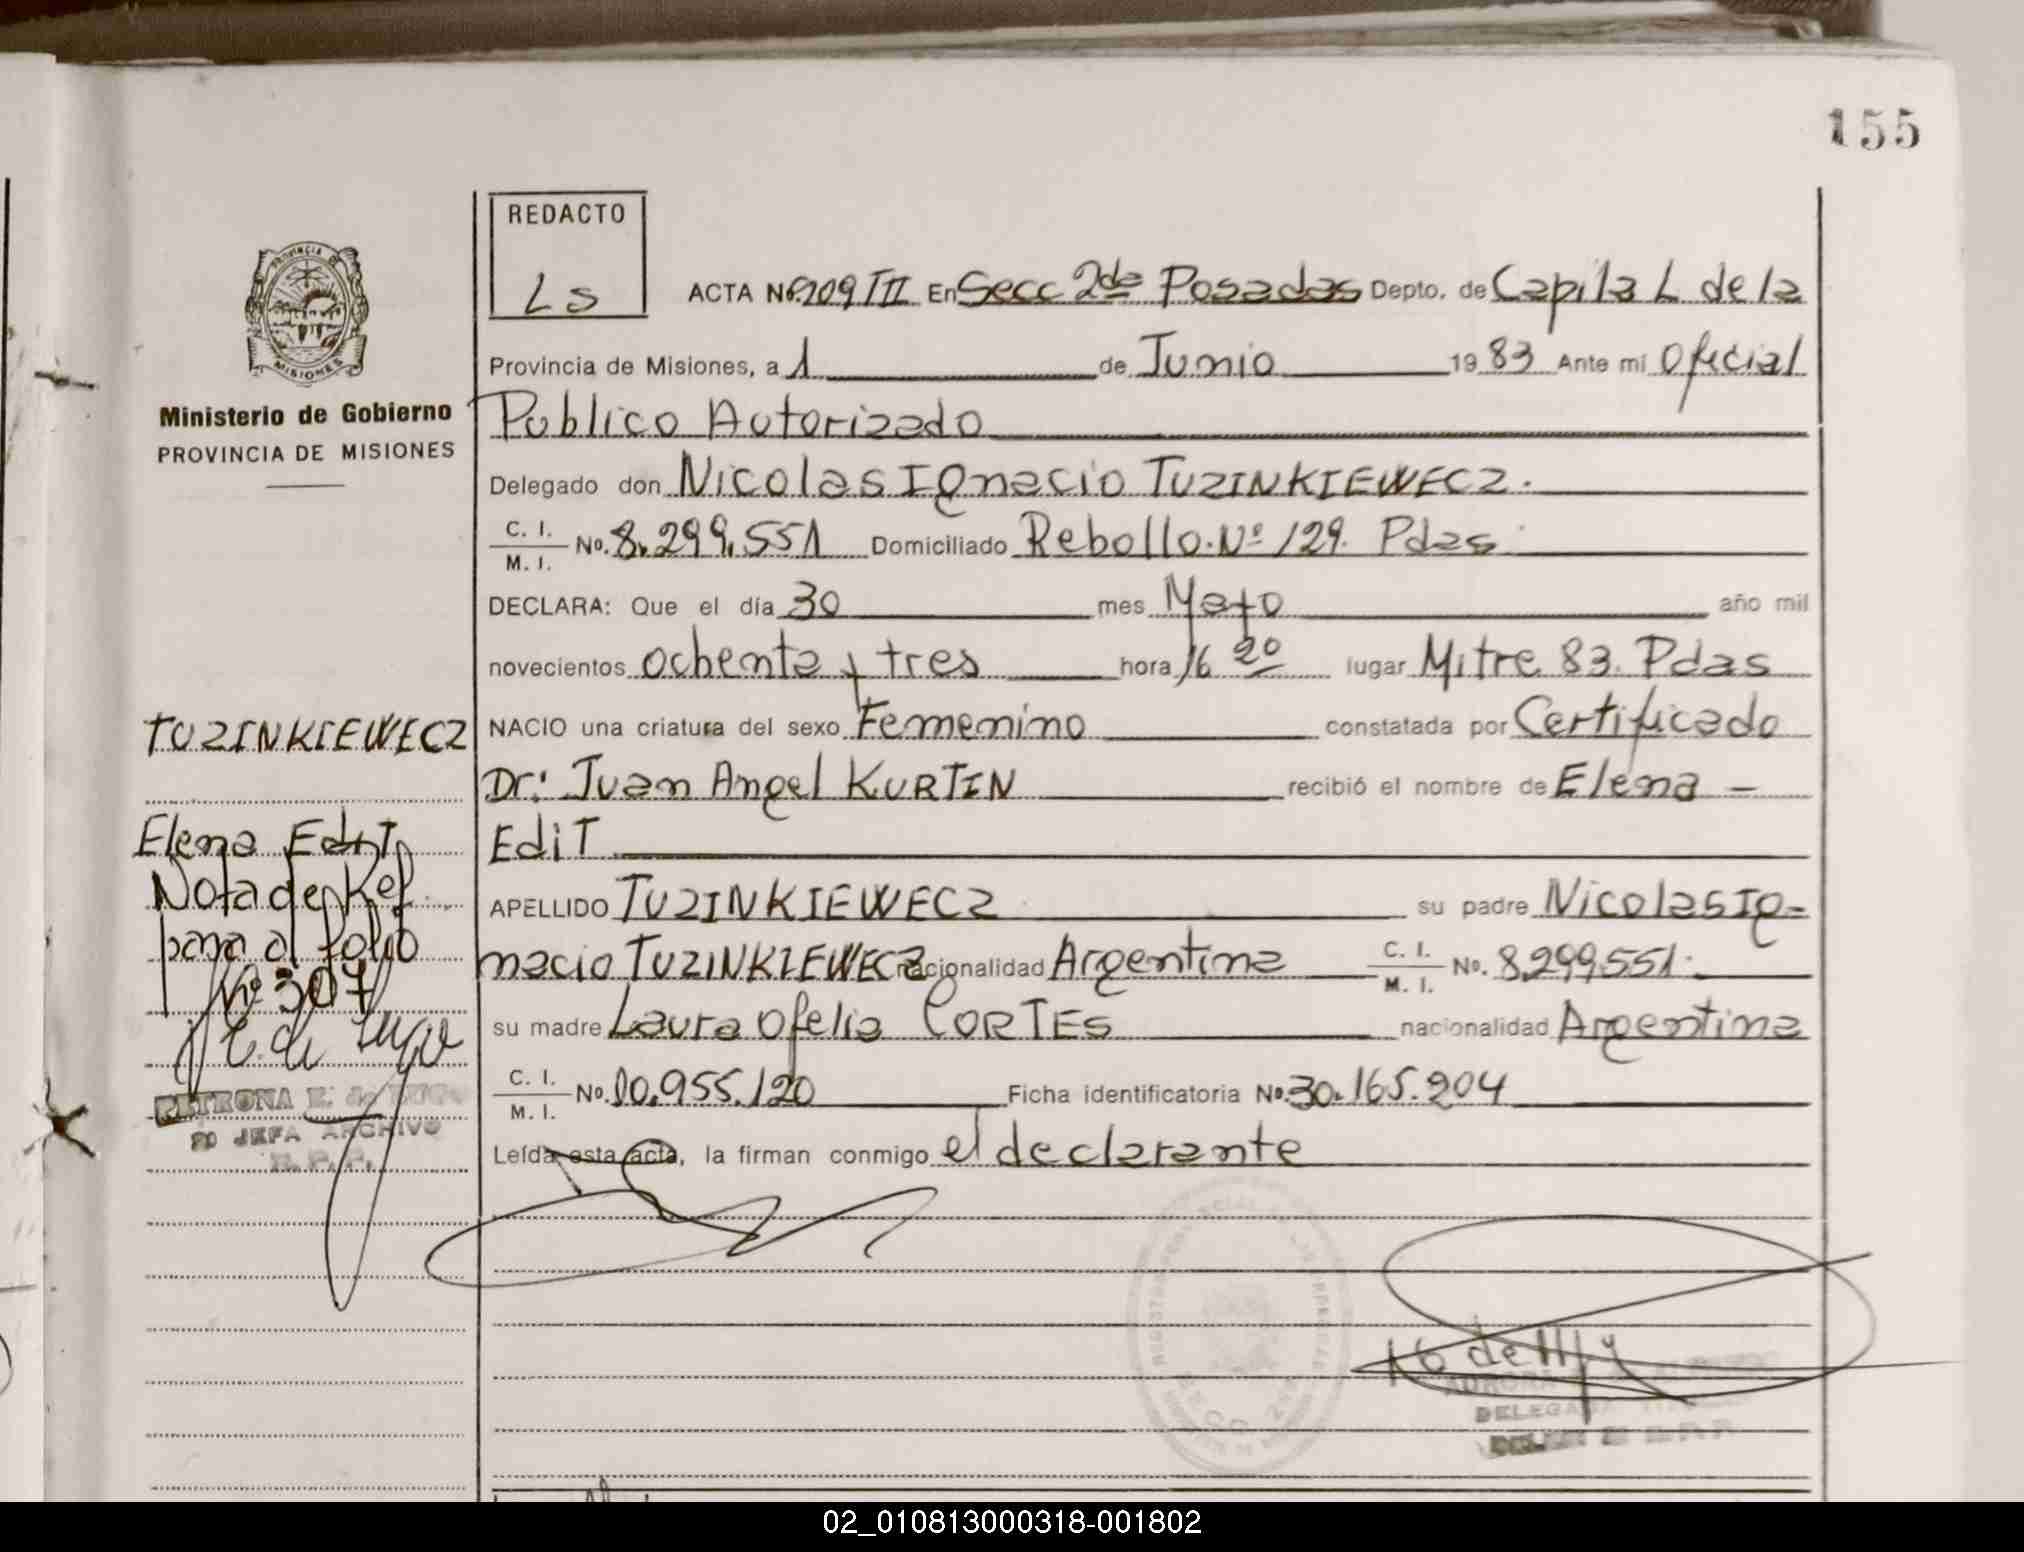 155
REDACTO
Ls
ACTA No. 209 III En Secc 2da Posadas Depto. de Capital de la
Provincia de Misiones, a 1 de Junio 1983 Ante mí Oficial
Publico Autorizado
Delegado don Nicolas Ignacio TUZINKIEWECZ.
C. I.
M. I. No. 8.299.551 Domiciliado Rebollo. Nº 129. Pdas.
DECLARA: Que el día 30 mes Mayo año mil
novecientos ochenta y tres hora 16 20 lugar Mitre 83. Pdas
NACIO una criatura del sexo Femenino constatada por Certificado
Dr: Juan Angel KURTIN recibió el nombre de Elena –
EdiT
APELLIDO TUZINKIEWECZ su padre Nicolas Ig-
nacio TUZINKIEWECZ nacionalidad Argentina C. I.
M. I. No. 8.299.551.
su madre Laura Ofelia CORTES nacionalidad Argentina
C. I.
M. I. No. 10.955.120 Ficha identificatoria No. 30.165.204
Leída esta acta, la firman conmigo el declarante
PROVINCIA DE
MISIONES
Ministerio de Gobierno
PROVINCIA DE MISIONES
TUZINKIEWECZ
Elena EdiT
Nota de Ref.
para al folio
Nº 307
PETRONA E. de LUGO
JEFA ARCHIVO
R. P. P.
AURORA
DELEGADA
02_010813000318-001802